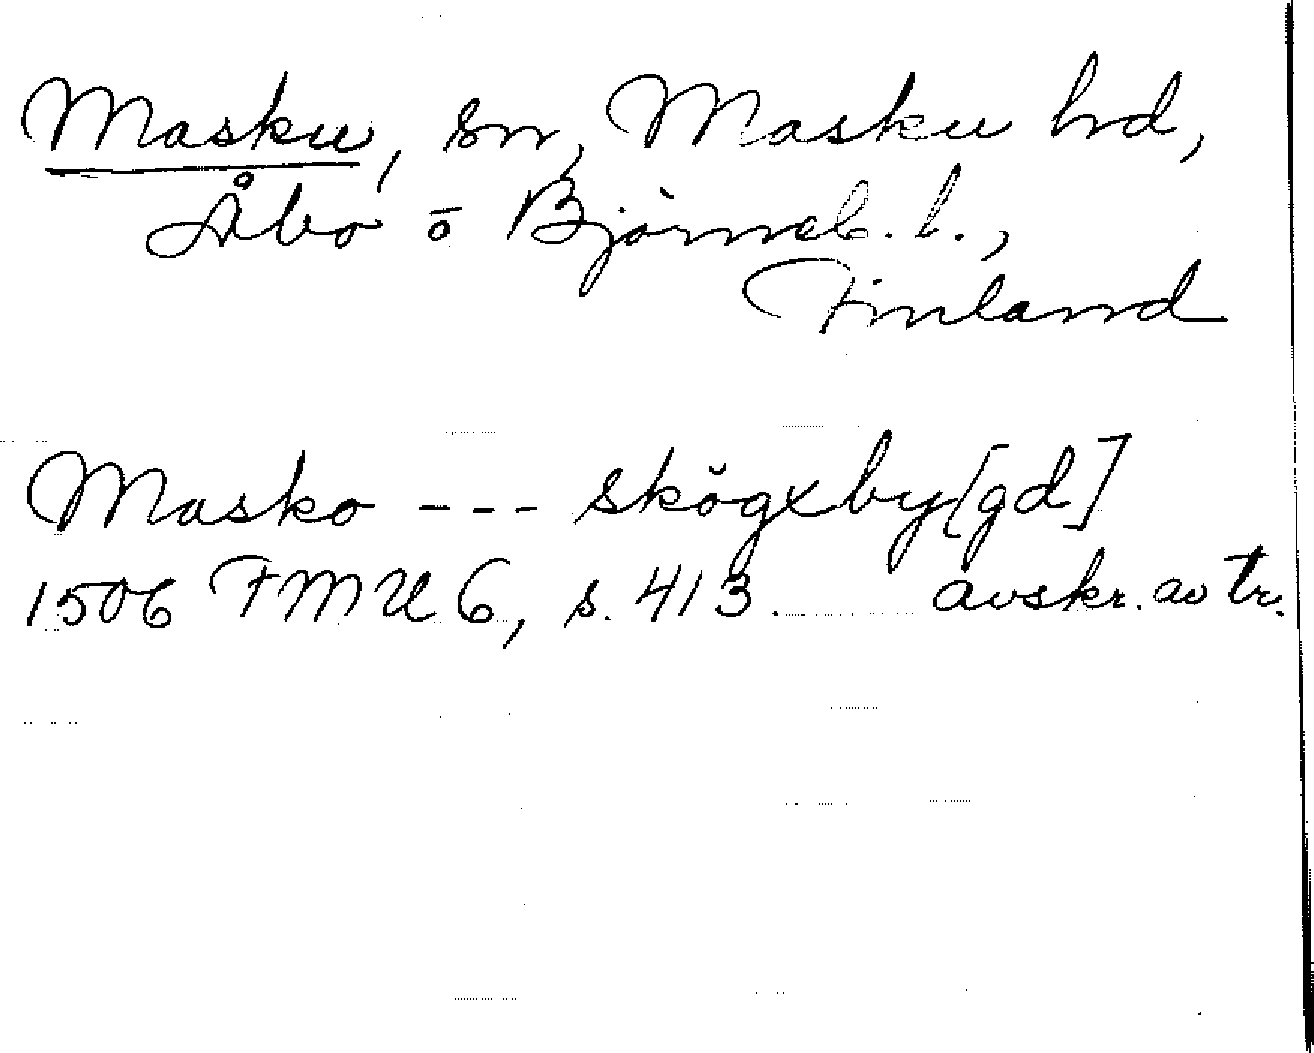 Masku, sn, Masku hd,
Åbo o Björneb. l.,
Finland
Masko --- skögxby[gd]
1506 FMU 6, s. 413. avskr. av tr.